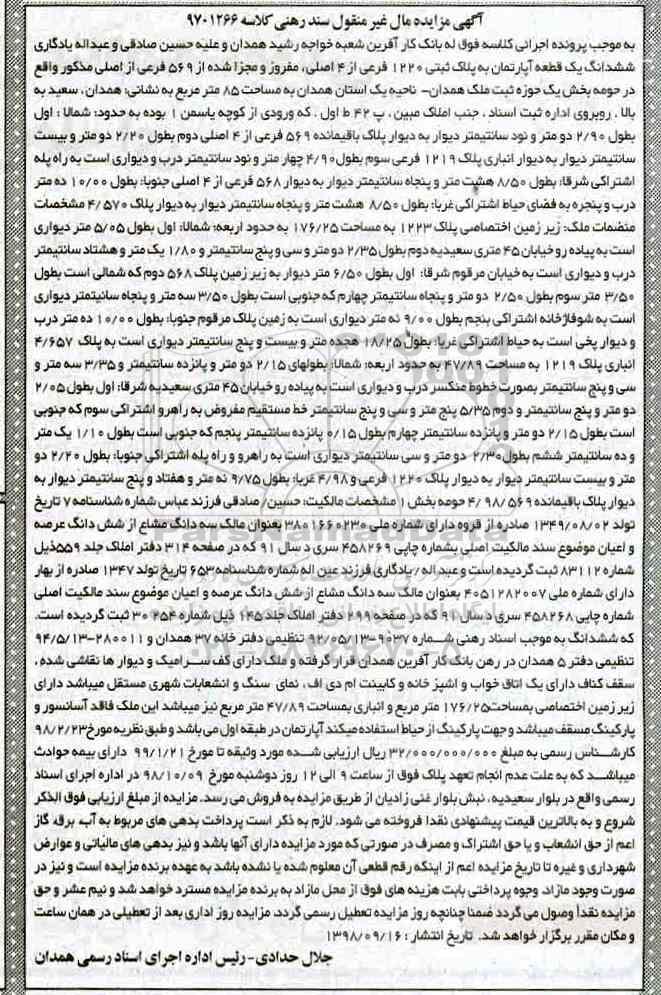 آگهی مزایده مال غیر منقول سند رهنی کلاسه ۹۷۰۱۲۶۶
به موجب پرونده اجرائی کلاسه فوق له بانک کار آفرین شعبه خواجه رشید همدان و علیه حسین صادقی و عبداله یادگاری
ششدانگ یک قطعه آپارتمان به پلاک ثبتی ۱۲۲۰ فرعی از ۴ اصلی، مفروز و مجزا شده از ۵۶۹ فرعی از اصلی مذکور واقع
در حومه بخش یک حوزه ثبت ملک همدان- ناحیه یک استان همدان به مساحت ۸۵ متر مربع به نشانی: همدان، سعید به
بالا، روبروی اداره ثبت اسناد، جنب املاک مبین، پ ۴۲ ط اول، که ورودی از کوچه یاسمن ۱ بوده به حدود: شمالا : اول
بطول ۲/۹۰ دو متر و نود سانتیمتر دیوار به دیوار پلاک باقیمانده ۵۶۹ فرعی از ۴ اصلی دوم بطول ۲/۲۰ دو متر و بیست
سانتیمتر دیوار به دیوار انباری پلاک ۱۲۱۹ فرعی سوم بطول ۴/۹۰ چهار متر و نود سانتیمتر درب و دیواری است به راه پله
اشتراکی شرقا: بطول ۸/۵۰ هشت متر و پنجاه سانتیمتر دیوار به دیوار ۵۶۸ فرعی از ۴ اصلی جنوبا: بطول ۱۰/۰۰ ده متر
درب و پنجره به فضای حیاط اشتراکی غربا: بطول ۸/۵۰ هشت متر و پنجاه سانتیمتر دیوار به دیوار پلاک ۴/۵۷۰ مشخصات
منضمات ملک: زیر زمین اختصاصی پلاک ۱۲۲۳ به مساحت ۱۷۶/۲۵ به حدود اربعه: شمالا: اول بطول ۵/۰۵ متر دیواری
است به پیاده رو خیابان ۴۵ متری سعیدیه دوم بطول ۲/۳۵ دو متر و سی و پنج سانتیمتر و ۱/۸۰ یک متر و هشتاد سانتیمتر
درب و دیواری است به خیابان مرقوم شرقا: اول بطول ۶/۵۰ متر دیوار به زیر زمین پلاک ۵۶۸ دوم که شمالی است بطول
۳/۵۰ متر سوم بطول ۲/۵۰ دو متر و پنجاه سانتیمتر چهارم که جنوبی است بطول ۳/۵۰ سه متر و پنجاه سانتیمتر دیواری
است به شوفاژخانه اشتراکی پنجم بطول ۹/۰۰ نه متر دیواری است به زمین پلاک مرقوم جنوبا: بطول ۱۰/۰۰ ده متر درب
و دیوار پخی است به حیاط اشتراکی غربا: بطول ۱۸/۲۵ هجده متر و بیست و پنج سانتیمتر دیواری است به پلاک ۴/۶۵۷
انباری پلاک ۱۲۱۹ به مساحت ۴۷/۸۹ به حدود اربعه: شمالا: بطولهای ۲/۱۵ دو متر و پانزده سانتیمتر و ۳/۳۵ سه متر و
سی و پنج سانتیمتر بصورت خطوط منکسر درب و دیواری است به پیاده رو خیابان ۴۵ متری سعیدیه شرقا: اول بطول ۲/۰۵
دو متر و پنج سانتیمتر و دوم ۵/۳۵ پنج متر و سی و پنج سانتیمتر خط مستقیم مفروض به راهرو اشتراکی سوم که جنوبی
است بطول ۲/۱۵ دو متر و پانزده سانتیمتر چهارم بطول ۰/۱۵ پانزده سانتیمتر پنجم که جنوبی است بطول ۱/۱۰ یک متر
و ده سانتیمتر ششم بطول ۲/۳۰ دو متر و سی سانتیمتر دیواری است به راهرو و راه پله اشتراکی جنوبا: بطول ۲/۲۰ دو
متر و بیست سانتیمتر دیوار به دیوار پلاک ۱۲۲۰ فرعی و ۴/۹۸ غربا: بطول ۹/۷۵ نه متر و هفتاد و پنج سانتیمتر دیوار به
دیوار پلاک باقیمانده ۴/۹۸/۵۶۹ حومه بخش ۱ مشخصات مالکیت: حسین/ صادقی فرزند عباس شماره شناسنامه ۷ تاریخ
تولد ۱۳۴۹/۰۸/۰۲ صادره از قروه دارای شماره ملی ۳۸۰۱۶۶۰۲۳۰ بعنوان مالک سه دانگ مشاع از شش دانگ عرصه
و اعیان موضوع سند مالکیت اصلی بشماره چاپی ۴۵۸۲۶۹ سری د سال ۹۱ که در صفحه ۳۱۴ دفتر املاک جلد ۵۵۹ذیل
شماره ۸۳۱۱۲ ثبت گردیده است و عبداله/ یادگاری فرزند عین اله شماره شناسنامه ۶۵۳ تاریخ تولد ۱۳۴۷ صادره از بهار
دارای شماره ملی ۴۰۵۱۲۸۲۰۰۷ بعنوان مالک سه دانگ مشاع از شش دانگ عرصه و اعیان موضوع سند مالکیت اصلی
شماره چاپی ۴۵۸۲۶۸ سری د سال ۹۱ که در صفحه ۲۹۹ دفتر املاک جلد ۱۴۵ ذیل شماره ۳۰۲۵۴ ثبت گردیده است.
که ششدانگ به موجب اسناد رهنی شماره ۹۰۳۷-۹۲/۰۵/۱۳ تنظیمی دفتر خانه ۳۷ همدان و ۲۸۰۰۱۱-۹۴/۵/۱۳
تنظیمی دفتر ۵ همدان در رهن بانک کار آفرین همدان قرار گرفته و ملک دارای کف سرامیک و دیوار ها نقاشی شده،
سقف کناف دارای یک اتاق خواب و اشپز خانه و کابینت ام دی اف، نمای سنگ و انشعابات شهری مستقل میباشد دارای
زیر زمین اختصاصی بمساحت ۱۷۶/۲۵ متر مربع و انباری بمساحت ۴۷/۸۹ متر مربع نیز میباشد این ملک فاقد آسانسور و
پارکینگ مسقف میباشد و جهت پارکینگ از حیاط استفاده میکند آپارتمان در طبقه اول می باشد و طبق نظریه مورخ ۹۸/۲/۲۳
کارشناس رسمی به مبلغ ۳۲/۰۰۰/۰۰۰/۰۰۰ ریال ارزیابی شده مورد وثیقه تا مورخ ۹۹/۱/۲۱ دارای بیمه حوادث
میباشد که به علت عدم انجام تعهد پلاک فوق از ساعت ۹ الی ۱۲ روز دوشنبه مورخ ۹۸/۱۰/۰۹ در اداره اجرای اسناد
رسمی واقع در بلوار سعیدیه، نبش بلوار غنی زادیان از طریق مزایده به فروش می رسد. مزایده از مبلغ ارزیابی فوق الذکر
شروع و به بالاترین قیمت پیشنهادی نقدا فروخته می شود. لازم به ذکر است پرداخت بدهی های مربوط به آب، برق، گاز
اعم از حق انشعاب و یا حق اشتراک و مصرف در صورتی که مورد مزایده دارای آنها باشد و نیز بدهی های مالیاتی و عوارض
شهرداری و غیره تا تاریخ مزایده اعم از اینکه رقم قطعی آن معلوم شده یا نشده باشد به عهده برنده مزایده است و نیز در
صورت وجود مازاد، وجوه پرداختی بابت هزینه های فوق از محل مازاد به برنده مزایده مسترد خواهد شد و نیم عشر و حق
مزایده نقدا وصول می گردد ضمنا چنانچه روز مزایده تعطیل رسمی گردد، مزایده روز اداری بعد از تعطیلی در همان ساعت
و مکان مقرر برگزار خواهد شد. تاریخ انتشار: ۱۳۹۸/۰۹/۱۶
جلال حدادی- رئیس اداره اجرای اسناد رسمی همدان